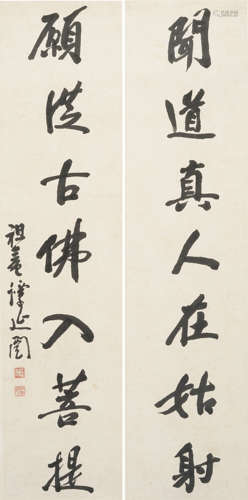 聞道真人在姑射
願從古佛入菩提
祖庵譚延闓